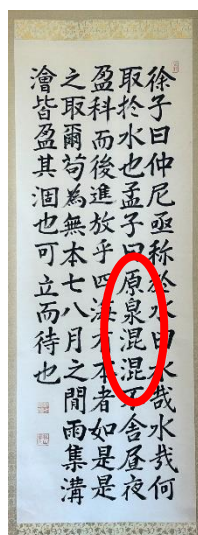 徐子曰仲尼亟称於水曰水哉水哉何
取於水也孟子曰原泉混混不舍晝夜
盈科而後進放乎四海有本者如是是
之取爾苟為無本七八月之閒雨集溝
澮皆盈其涸也可立而待也